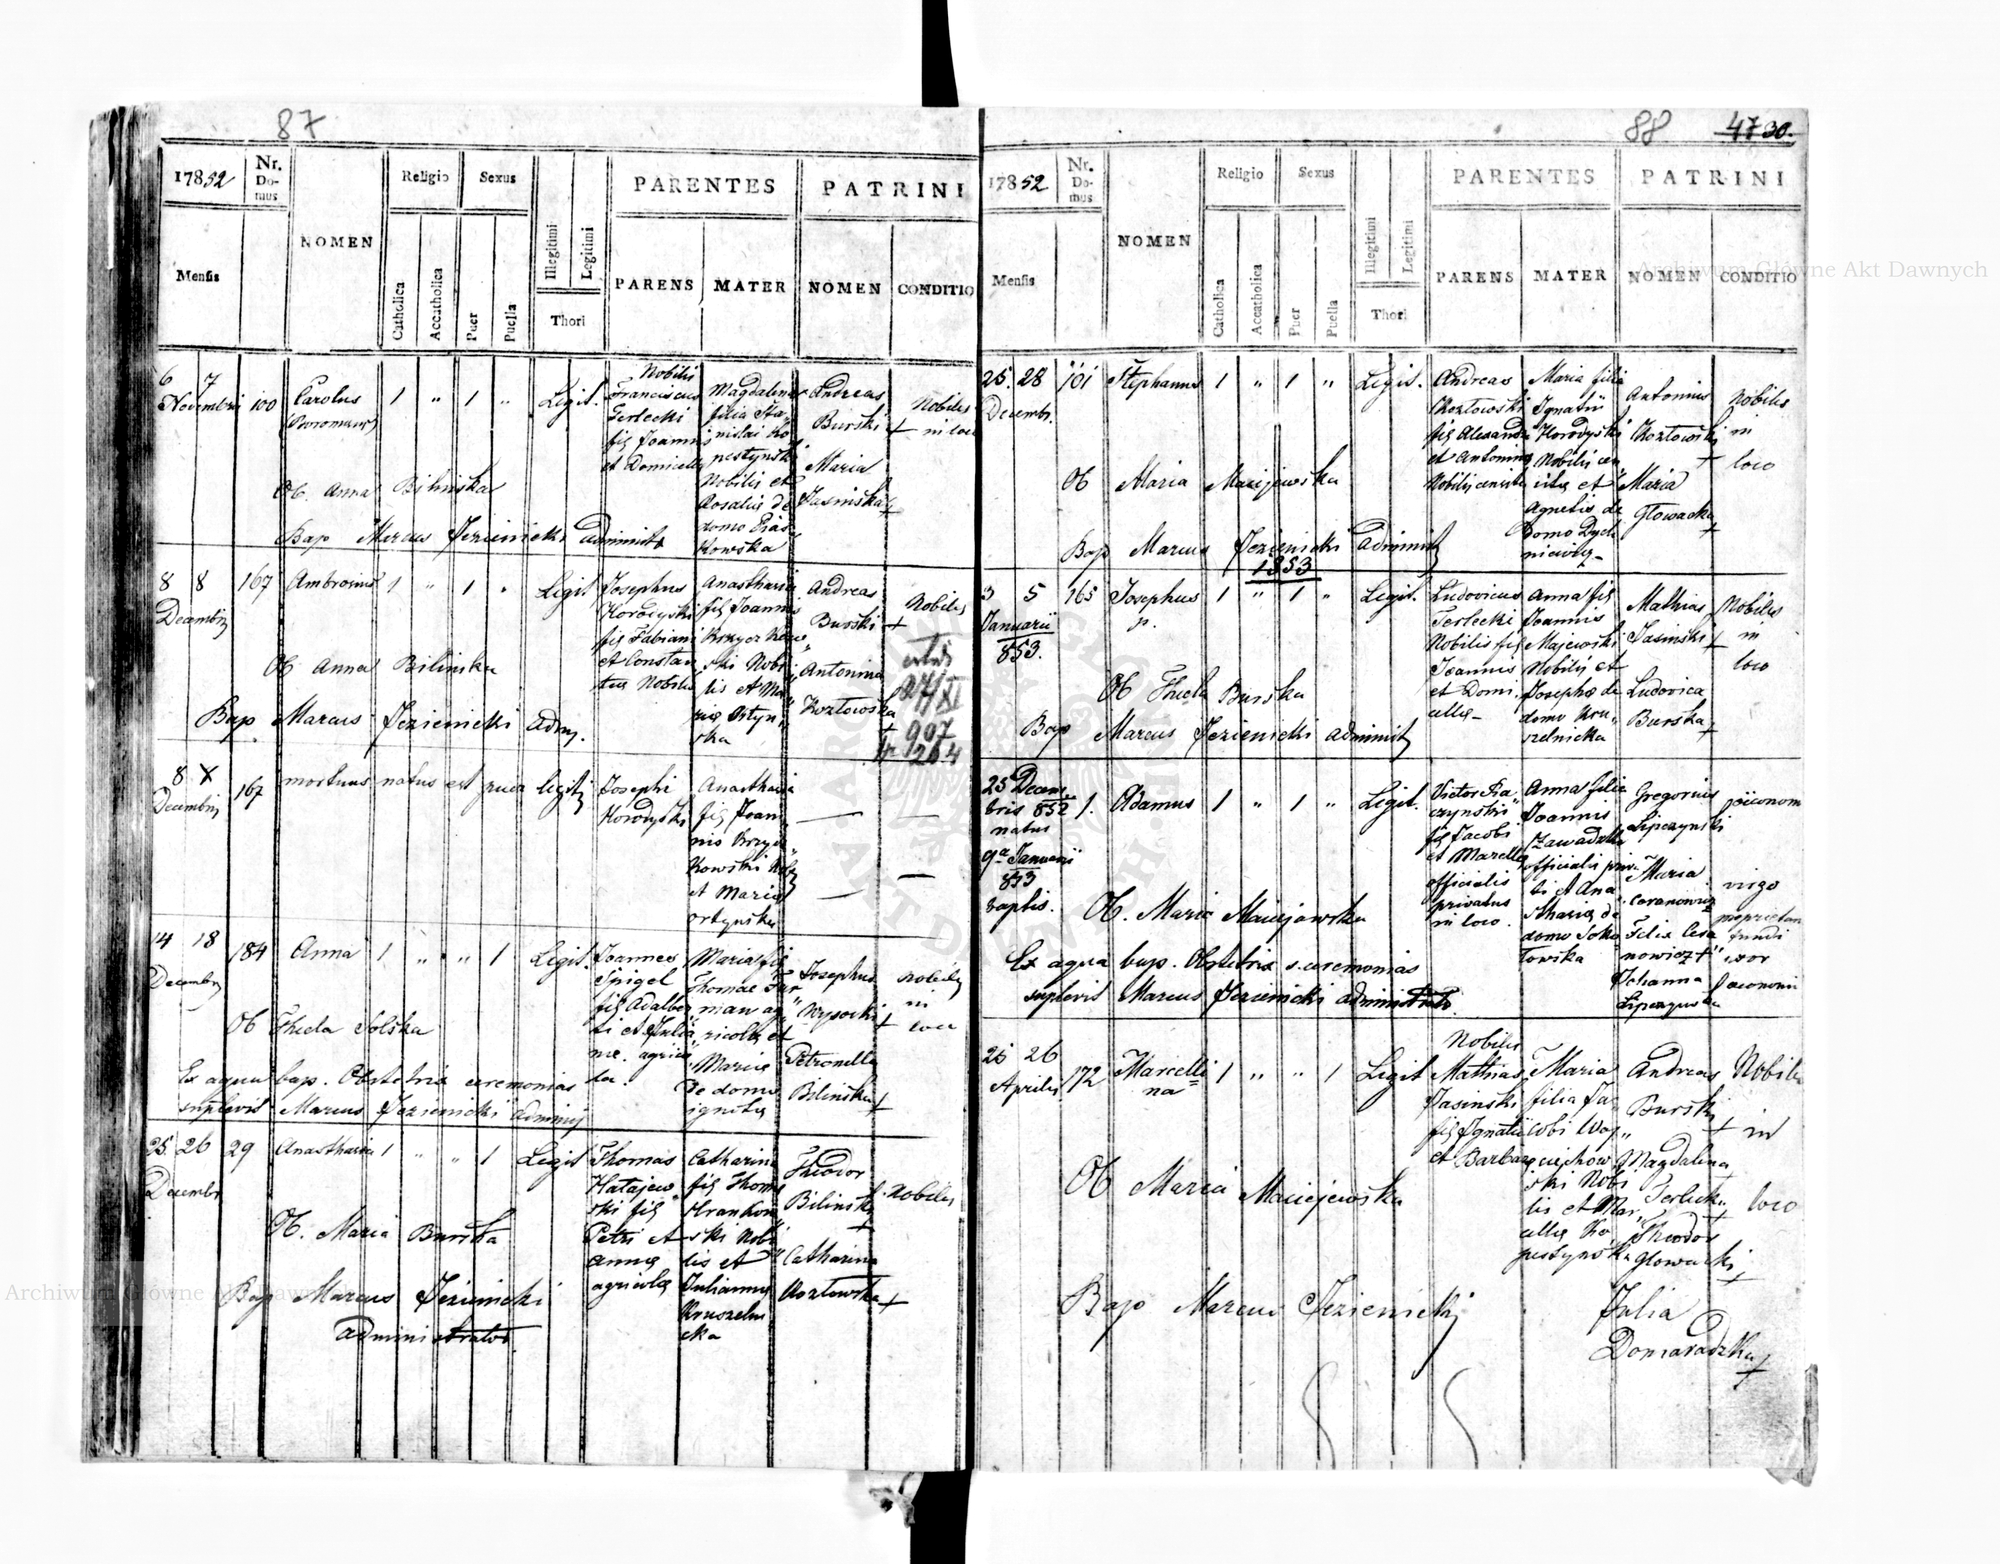 87
1852
Nr. Do-mus
NOMEN
Religio
Sexus
PARENTES
PATRINI
Mensis
Catholica
Accatholica
Puer
Puella
Illegitimi
Legitimi
Thori
PARENS
MATER
NOMEN
CONDITIO
6 7
Novembris
100
Carolus
(Boromeus)
1 " 1 "
Legit.
Nobilis
Franciscus
Terlecki
fil Joannis
et Domicella
Magdalena
filia Sta-
nislai Ko
pestynski
Nobilis et
Rosalia de
domo Pias-
kowska
Andreas
Burski +
Maria
Jasinska +
Nobiles
in loco
Ob. Anna Bilinska
Bap Marcus Jezienicki administ
8 8
Decembris
167
Ambrosius
1 " 1 "
Legit
Josephus
Horodyski
fil Fabiani
et Constan
tia Nobilis
Anastharia
fil Joannis
Krzyczkow
ski Nobi
lis et Ma
ria Ortyn
ska
Andreas
Burski +
Antonina
Kozlowska
+
Nobiles
27/XI
907
264
Ob Anna Bilinska
Bap. Marcus Jezienicki Adm.
8 X
Decembris
167
mortuus natus est puer legit
Josephi
Horodyski
Anastharia
fil Joan
nis Krzycz
kowski Nob
et Maria
ortynska
14 18
Decembr
184
Anna
1 " " 1
Legit.
Joannes
Spigel
fil Adalber
ti et Julia
nne. agrico
la.
Maria fil
Thomae Fur
man ag
ricola et
Maria
de domo
ignota
Josephus
Wysocki +
Petronella
Bilinska +
nobiles
in
loco
Ob Thecla Solska
Ex aqua bap. Obstetrix ceremonias
suplevit Marcus Jezienicki Adminis
25. 26
Decembr
29
Anastharia
1 " " 1
Legit
Thomas
Hatajew
ski fil
Petri et
Anna
agricola
Catharina
fil Thoma
Hrankow
ski Nobi
lis et
Julianna
Kruszelni
cka
Theodor
Bilinski
+
Catharina
Kozlowska +
Nobiles
Ob. Maria Burska
Bap Marcus Jezienicki
Administrator.
88
47 30.
1852
Nr. Do-mus
NOMEN
Religio
Sexus
PARENTES
PATRINI
Mensis
Catholica
Accatholica
Puer
Puella
Illegitimi
Legitimi
Thori
PARENS
MATER
NOMEN
CONDITIO
25. 28
Decembr.
101
Stephanus
1 " 1 "
Legit.
Andreas
Kozlowski
fil Alexandri
et Antonina
Maria filia
Ignatii
Horodyski
Nobilis
et
Agnetis de
domo
Antonius
Kozlowski
+
Maria
Glowacka
+
nobiles
in
loco
Ob Maria Maciejewska
Bap Marcus Jezienicki Administ
1853
3 5
Januarii
853.
165
Josephus
p.
1 " 1 "
Legit.
Ludovicus
Terlecki
Nobilis fil
Joannis
et Domi-
cella
Anna fil
Joannis
Majewski
Nobilis et
Josepha de
domo Kru
szelnicka
Mathias
Jasinski
+
Ludovica
Burska +
Nobiles
in
loco
Ob Thecla Burska
Bap Marcus Jezienicki administ
25 Decem
bris 852
natus
9a Januarii
853
baptis.
1.
Adamus
1 " 1 "
Legit.
Victor Ra
czynski
fil Jacobi
et Marcella
officialis
privatus
in loco.
Anna filia
Joannis
Zawadzki
officialis priva
ti et Ana
stharia de
domo Soko
lowska
Gregorius
Lipczynski
Maria
Felix Cera
nowicz +
Johanna
Lipczynska
virgo
fundi
uxor
Ob. Maria Maciejowska
Ex aqua bap. Obstetrix s. ceremonias
suplevit Marcus Jezienicki administrato.
25 26
Aprilis
172
Marcelli
na
1 " " 1
Legit
Nobilis
Mathias
Jasinski
fil Ignatii
et Barbara
Maria
filia Ja
cobi Woy
ciechow
ski Nobi
lis et Mar
cella Ko
pestynska
Andreas
Burski
+
Magdalena
Terlecka
+
Theodor
Glowacki
+
Julia
Domaradzka
+
Nobiles
in
loco
Ob Maria Maciejewska
Bap Marcus Jezienicki
Archiwum Główne Akt Dawnych